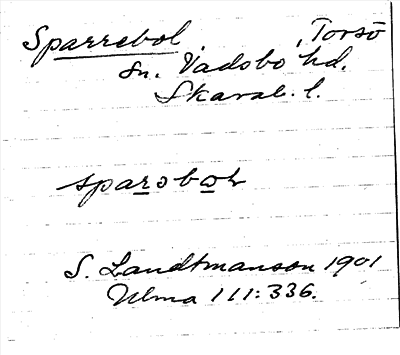 Sparrebol, Torsö
sn. Vadsbo hd.
Skarab. l.
sparobol
S. Landtmanson 1901
Ulma 111:336.